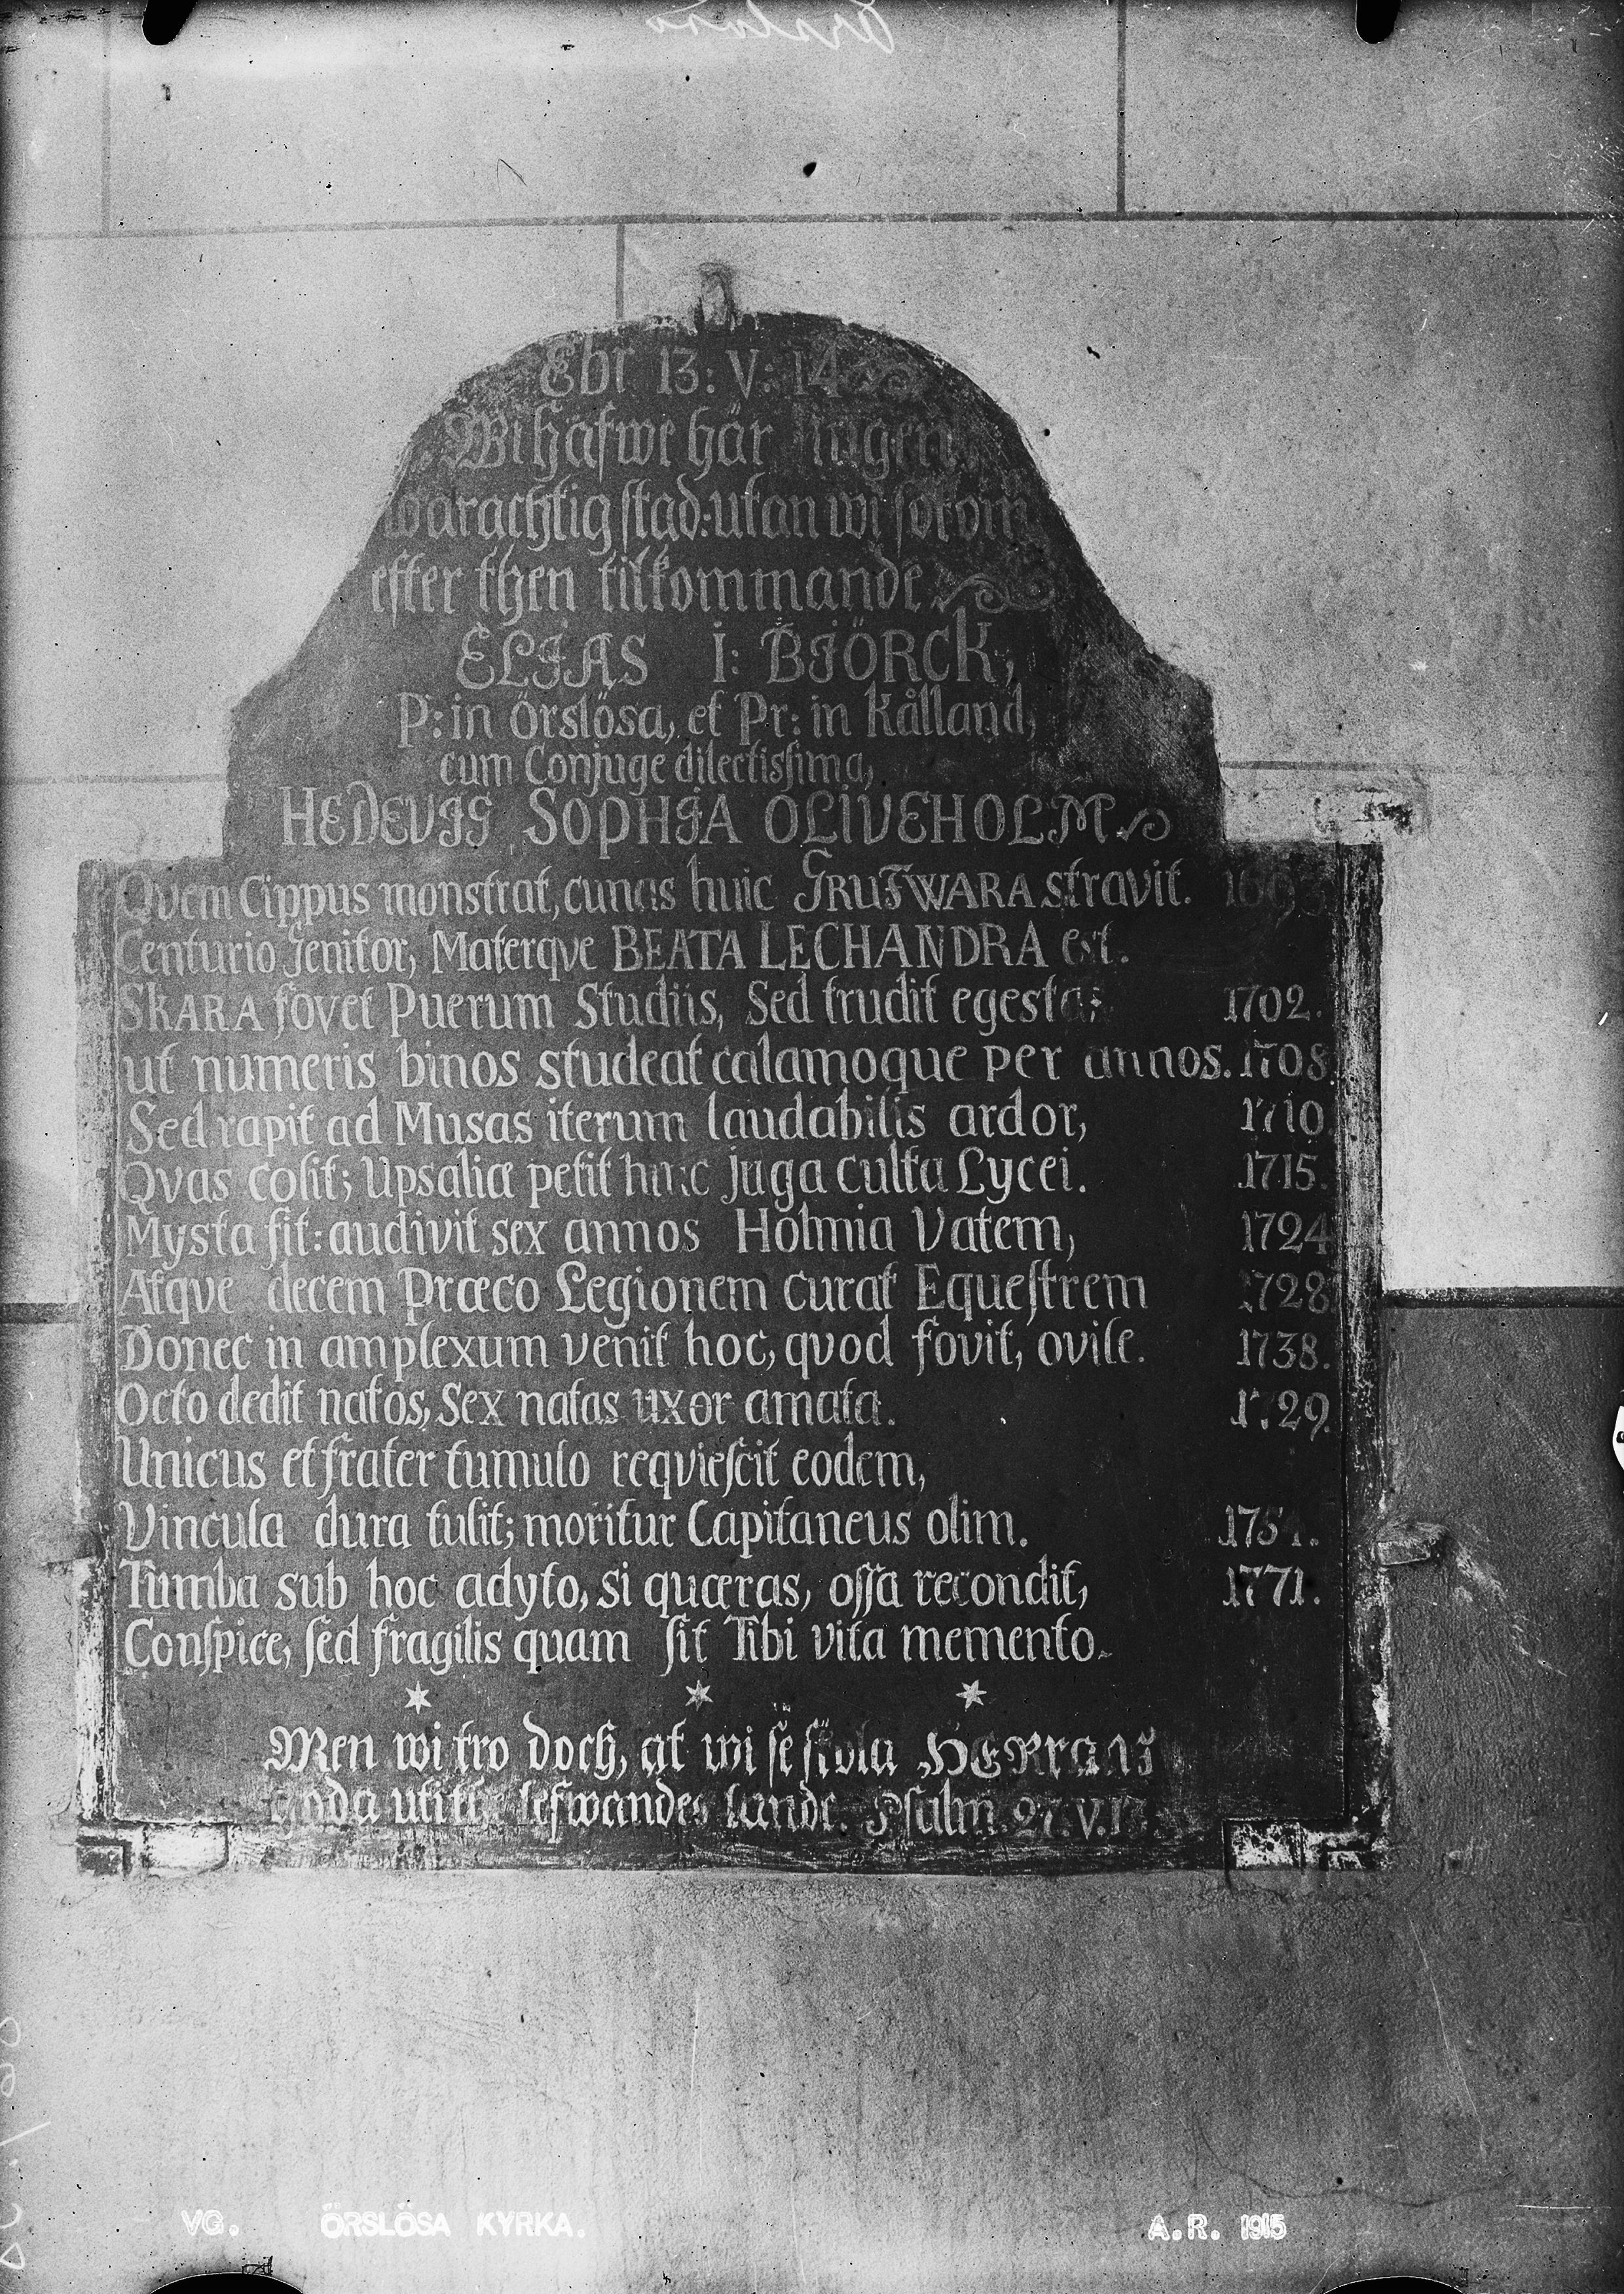 Ebr 13: V: 14
Wi hafwe här ingen
warachtig stad: utan wi sökom
efter then tilkommande
ELIAS I: BIÖRCK,
P: in Örslösa, et Pr: in Kålland,
cum Conjuge dilectissima,
HEDEVIG SOPHIA OLIVEHOLM
Qvem Cippus monstrat, cunas huic GRUFWARA stravit. 1693
Centurio Genitor, Materqve BEATA LECHANDRA est.
SKARA fovet Puerum Studiis, Sed trudit egestas 1702.
ut numeris binos studeat calamoque per annos. 1708.
Sed rapit ad Musas iterum laudabilis ardor, 1710.
Qvas colit; Upsaliæ petit hinc juga culta Lycei. 1715.
Mysta fit: audivit sex annos Holmia Vatem, 1724
Atqve decem Præco Legionem curat Equestrem 1728.
Donec in amplexum venit hoc, qvod fovit, ovile. 1738.
Octo dedit natos, Sex natas uxor amata. 1729.
Unicus et frater tumulo requiescit eodem,
Vincula dura tulit; moritur Capitaneus olim.
Tumba sub hoc adyto, si quæras, ossa recondit, 1771.
Conspice, sed fragilis quam sit Tibi vita memento.
Men wi tro doch, at wi se skola HERrans
goda uti lefwandes lande. Psalm. 27. V. 13
VG. ÖRSLÖSA KYRKA. A.R. 1915